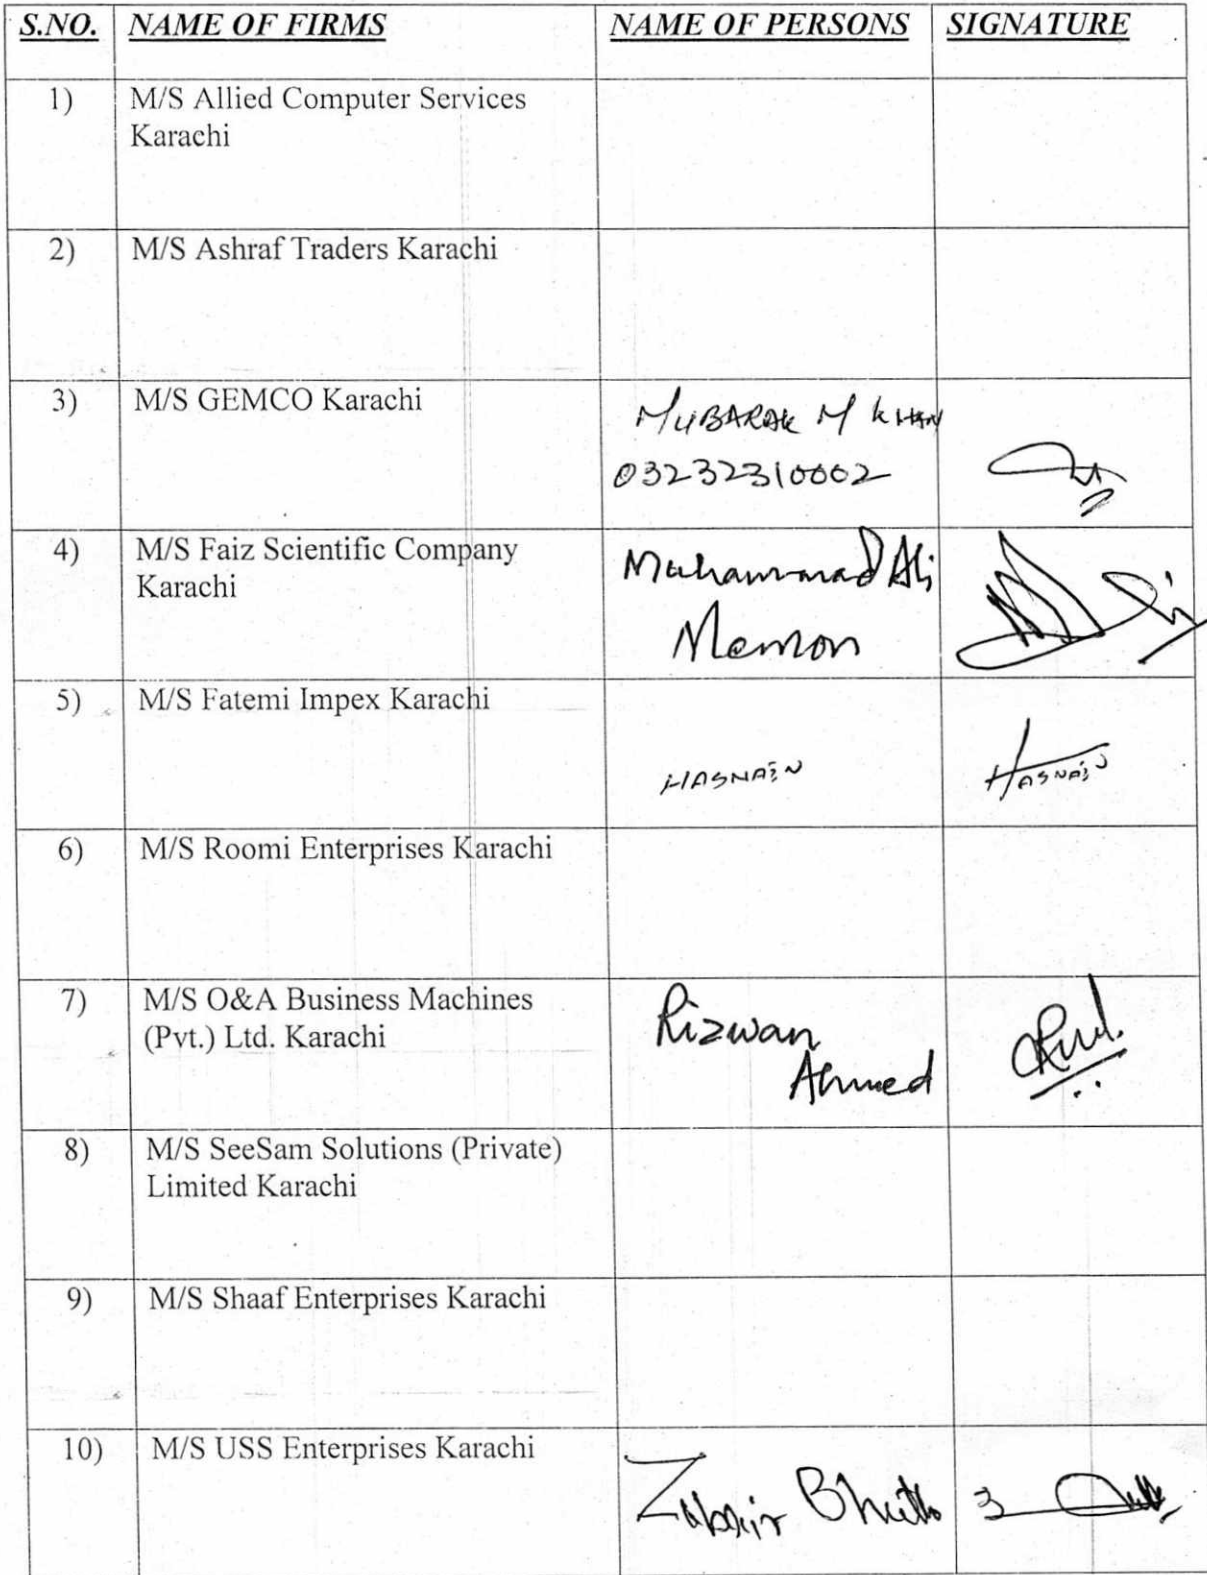 S.NO. NAME OF FIRMS NAME OF PERSONS SIGNATURE
1) M/S Allied Computer Services
Karachi
2) M/S Ashraf Traders Karachi
3) M/S GEMCO Karachi
MUBARAK M KHAN
03232310002
4) M/S Faiz Scientific Company
Karachi
Muhammad Ali
Memon
5) M/S Fatemi Impex Karachi
HASNAIN HASNAIN
6) M/S Roomi Enterprises Karachi
7) M/S O&A Business Machines
(Pvt.) Ltd. Karachi
Rizwan
Ahmed
8) M/S SeeSam Solutions (Private)
Limited Karachi
9) M/S Shaaf Enterprises Karachi
10) M/S USS Enterprises Karachi
Bhutto